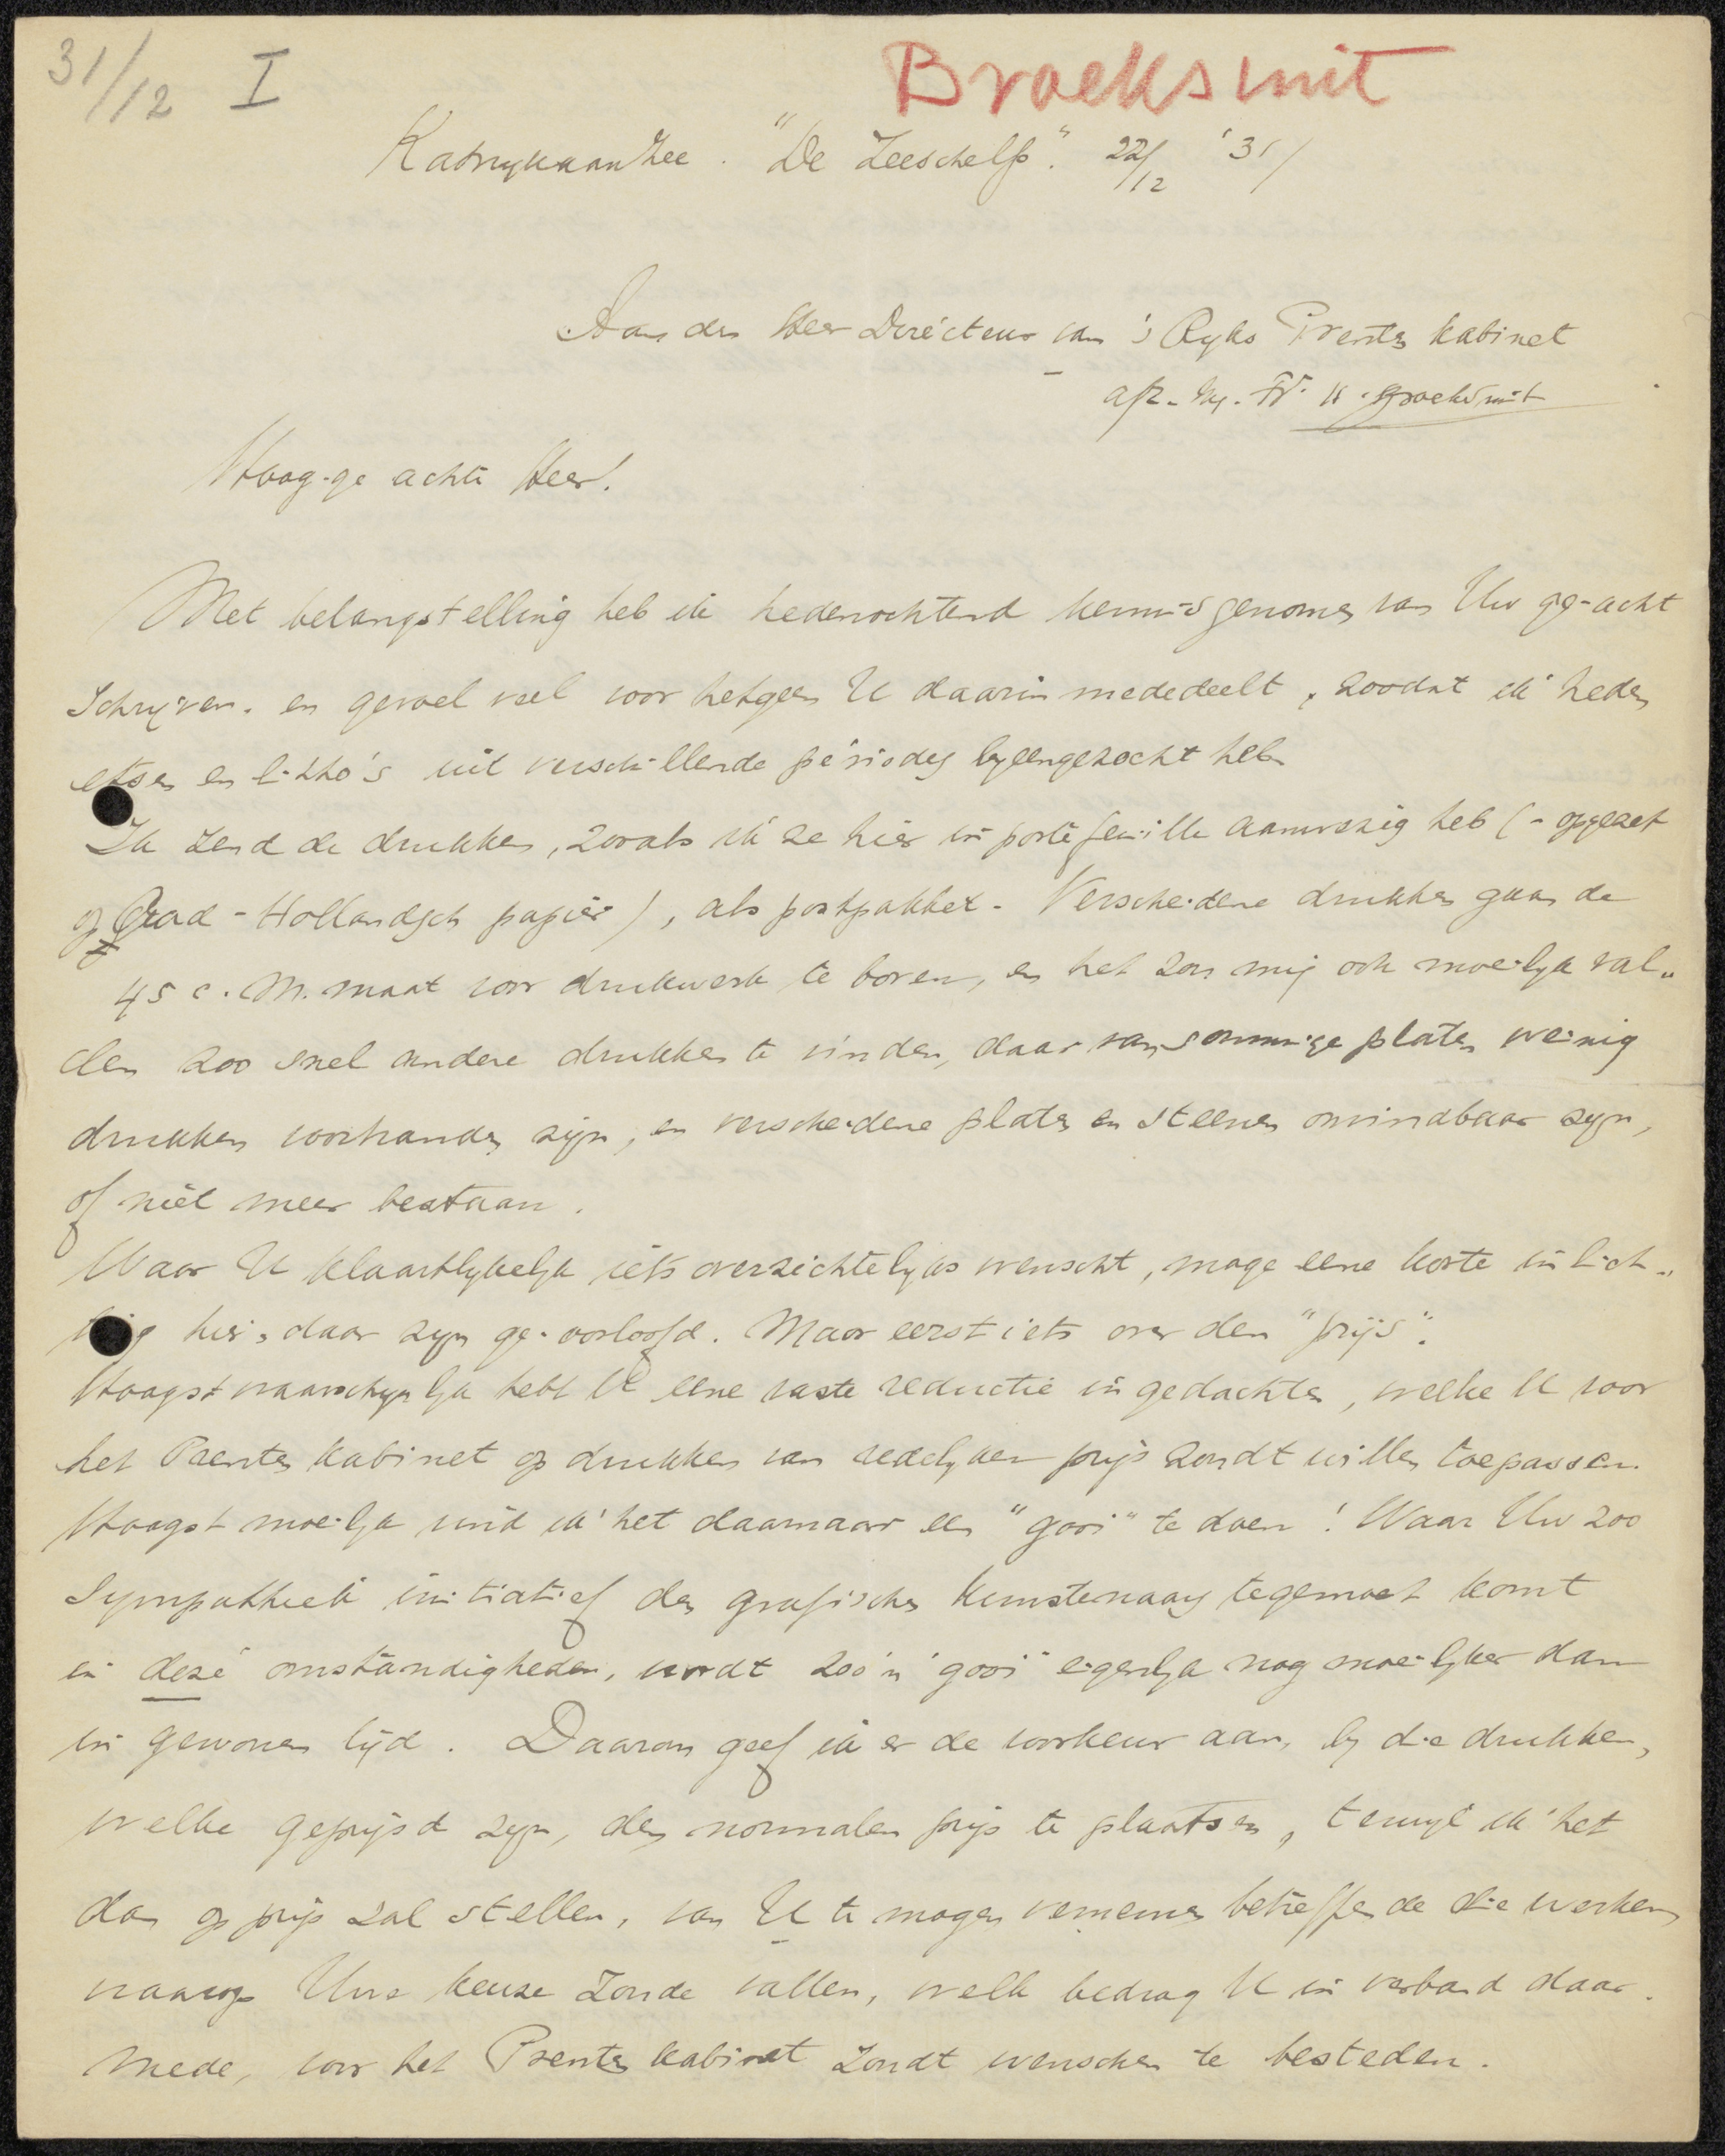 31/12 I
Broeksmit
Katwyk aan Zee. "De Zeeschelp". 22/12 '31/
Aan den Heer Directeur van 's Ryks Prenten kabinet
afz. Fr. H. Broeksmit
Hoog-ge achte Heer!
Met belangstelling heb ik hedenochtend kennis genomen van Uw ge-acht
Schrijven. en gevoel veel voor hetgeen U daarin mededeelt, zoodat ik heden
etsen en litho's uit verschillende périodes byeengezocht heb.
Ik zend de drukken, zooals ik ze hier in portefeuille aanwezig heb (- opgezet
op Oud-Hollandsch papier), als postpakket. Verscheidene drukken gaan de
45 c.M. maat voor drukwerk te boven, en het zou mij ook moeilyk val„
len zoo snel andere drukken te vinden, daar van sommige platen weinig
drukken voorhanden zijn, en verscheidene platen en steenen onvindbaar zyn,
of niet meer bestaan.
Waar U klaarblykelyk iets overzichtelyks wenscht, moge eene korte inlich„
ting hier, daar zyn ge-oorloofd. Maar eerst iets over den "prijs".
Hoogst waarschynlyk hebt U eene vaste reductie in gedachten, welke U voor
het Prenten kabinet op drukken van redelyken prijs zoudt willen toepassen.
Hoogst moeilyk vind ik het daarnaar een "gooi" te doen! Waar Uw zoo
Sympathiek initiatief den grafischen Kunstenaars tegemoet komt
in deze omstandigheden, wordt zoo'n "gooi" eigenlyk nog moeilyker dan
in gewonen tijd. Daarom geef ik er de voorkeur aan, by die drukken,
welke geprijsd zyn, den normalen prijs te plaatsen, terwyl ik het
dan op prijs zal stellen, van U te mogen vernemen betreffende die werken
waarop Uwe keuze zoude vallen, welk bedrag U in verband daar-
mede, voor het Prenten kabinet zoudt wenschen te besteden.